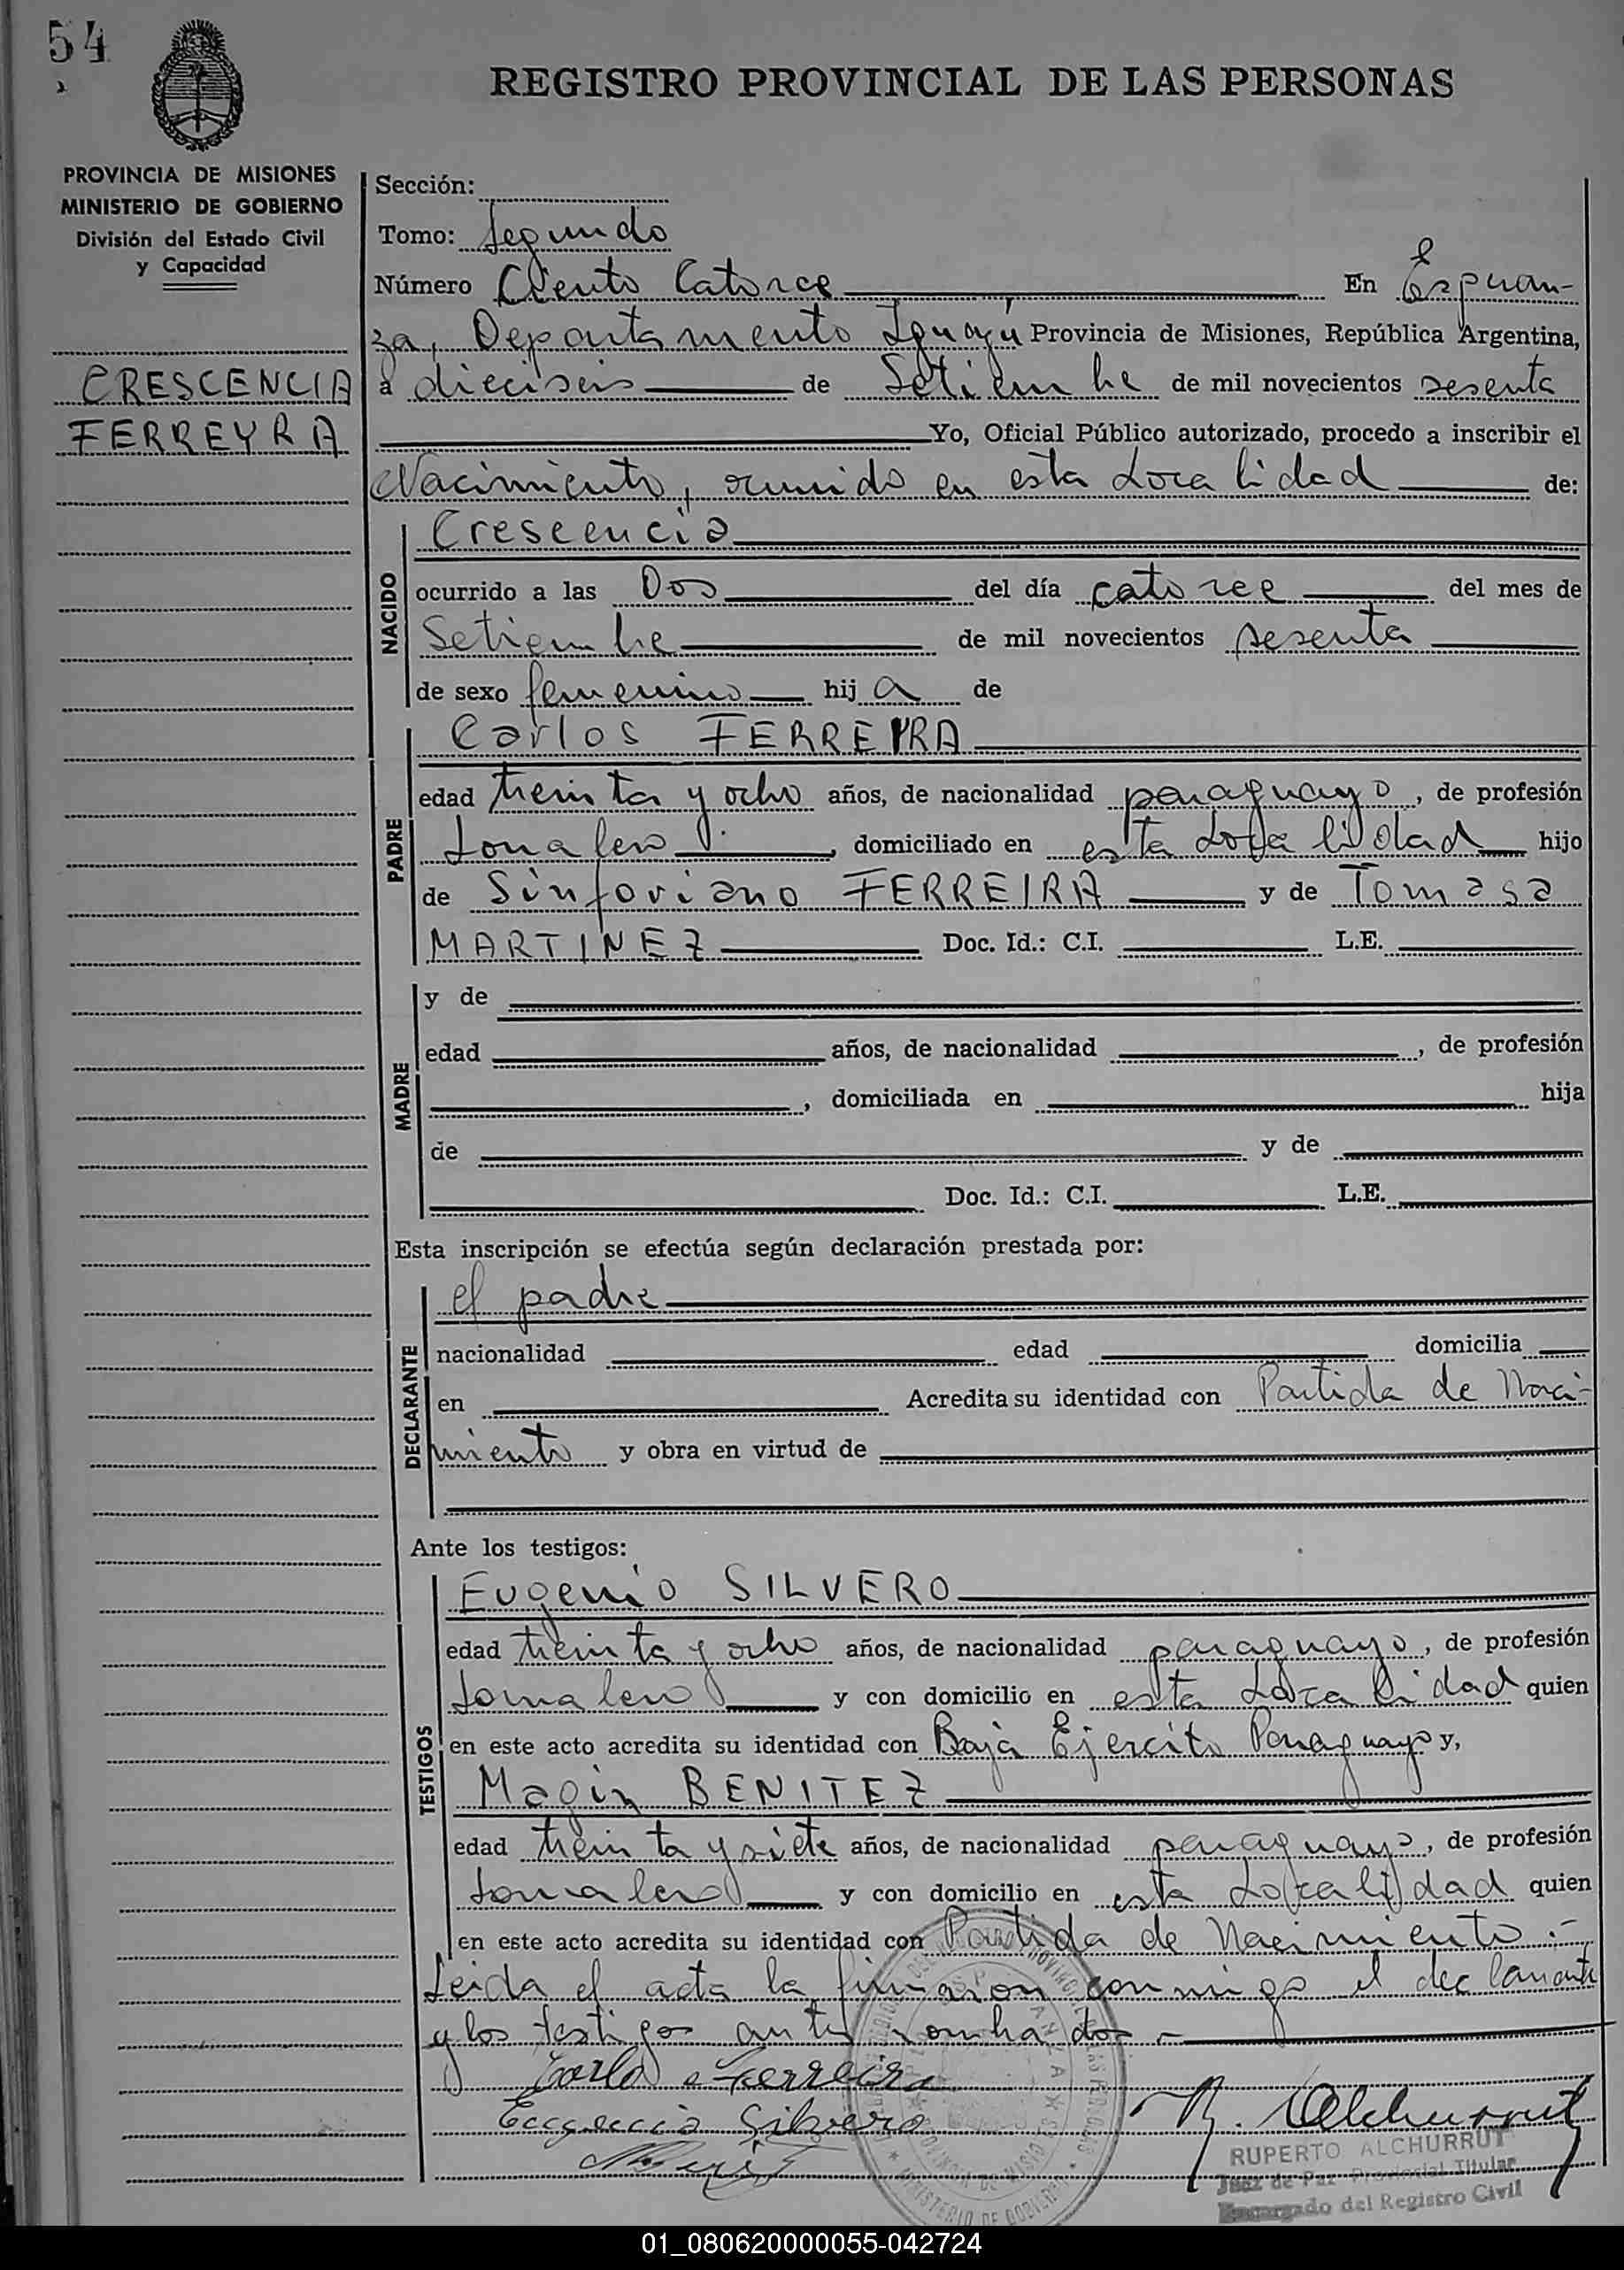 54
REGISTRO PROVINCIAL DE LAS PERSONAS
PROVINCIA DE MISIONES
MINISTERIO DE GOBIERNO
División del Estado Civil
y Capacidad
CRESCENCIA
FERREYRA
Sección:
Tomo: Segundo
Número Ciento Catorce En Esperan-
za, Departamento Iguazú Provincia de Misiones, República Argentina,
a dieciseis de Setiembre de mil novecientos sesenta
Yo, Oficial Público autorizado, procedo a inscribir el
Nacimiento, ocurrido en esta Localidad de:
NACIDO
Crescencia
ocurrido a las Dos del día catorce del mes de
Setiembre de mil novecientos sesenta
de sexo femenino hij a de
PADRE
Carlos FERREYRA
edad treinta y ocho años, de nacionalidad paraguayo, de profesión
Jornalero, domiciliado en esta Localidad hijo
de Sinforiano FERREIRA y de Tomasa
MARTINEZ Doc. Id.: C.I. L.E.
MADRE
y de
edad años, de nacionalidad , de profesión
, domiciliada en hija
de y de
Doc. Id.: C.I. L.E.
Esta inscripción se efectúa según declaración prestada por:
DECLARANTE
el padre
nacionalidad edad domicilia
en Acredita su identidad con Partida de Naci-
miento y obra en virtud de
Ante los testigos:
TESTIGOS
Eugenio SILVERO
edad treinta y ocho años, de nacionalidad paraguayo, de profesión
Jornalero y con domicilio en esta Localidad quien
en este acto acredita su identidad con Baja Ejercito Paraguayo y,
Magin BENITEZ
edad treinta y siete años, de nacionalidad paraguayo, de profesión
Jornalero y con domicilio en esta Localidad quien
en este acto acredita su identidad con Partida de Nacimiento.-
Leida el acta la firmaron conmigo el declarante
y los testigos ante nombrados.-
Carlo Ferreira
Eugenio Silvero
R. Alchurrut
RUPERTO ALCHURRUT
Juez de Paz Provincial Titular
Encargado del Registro Civil
01_080620000055-042724